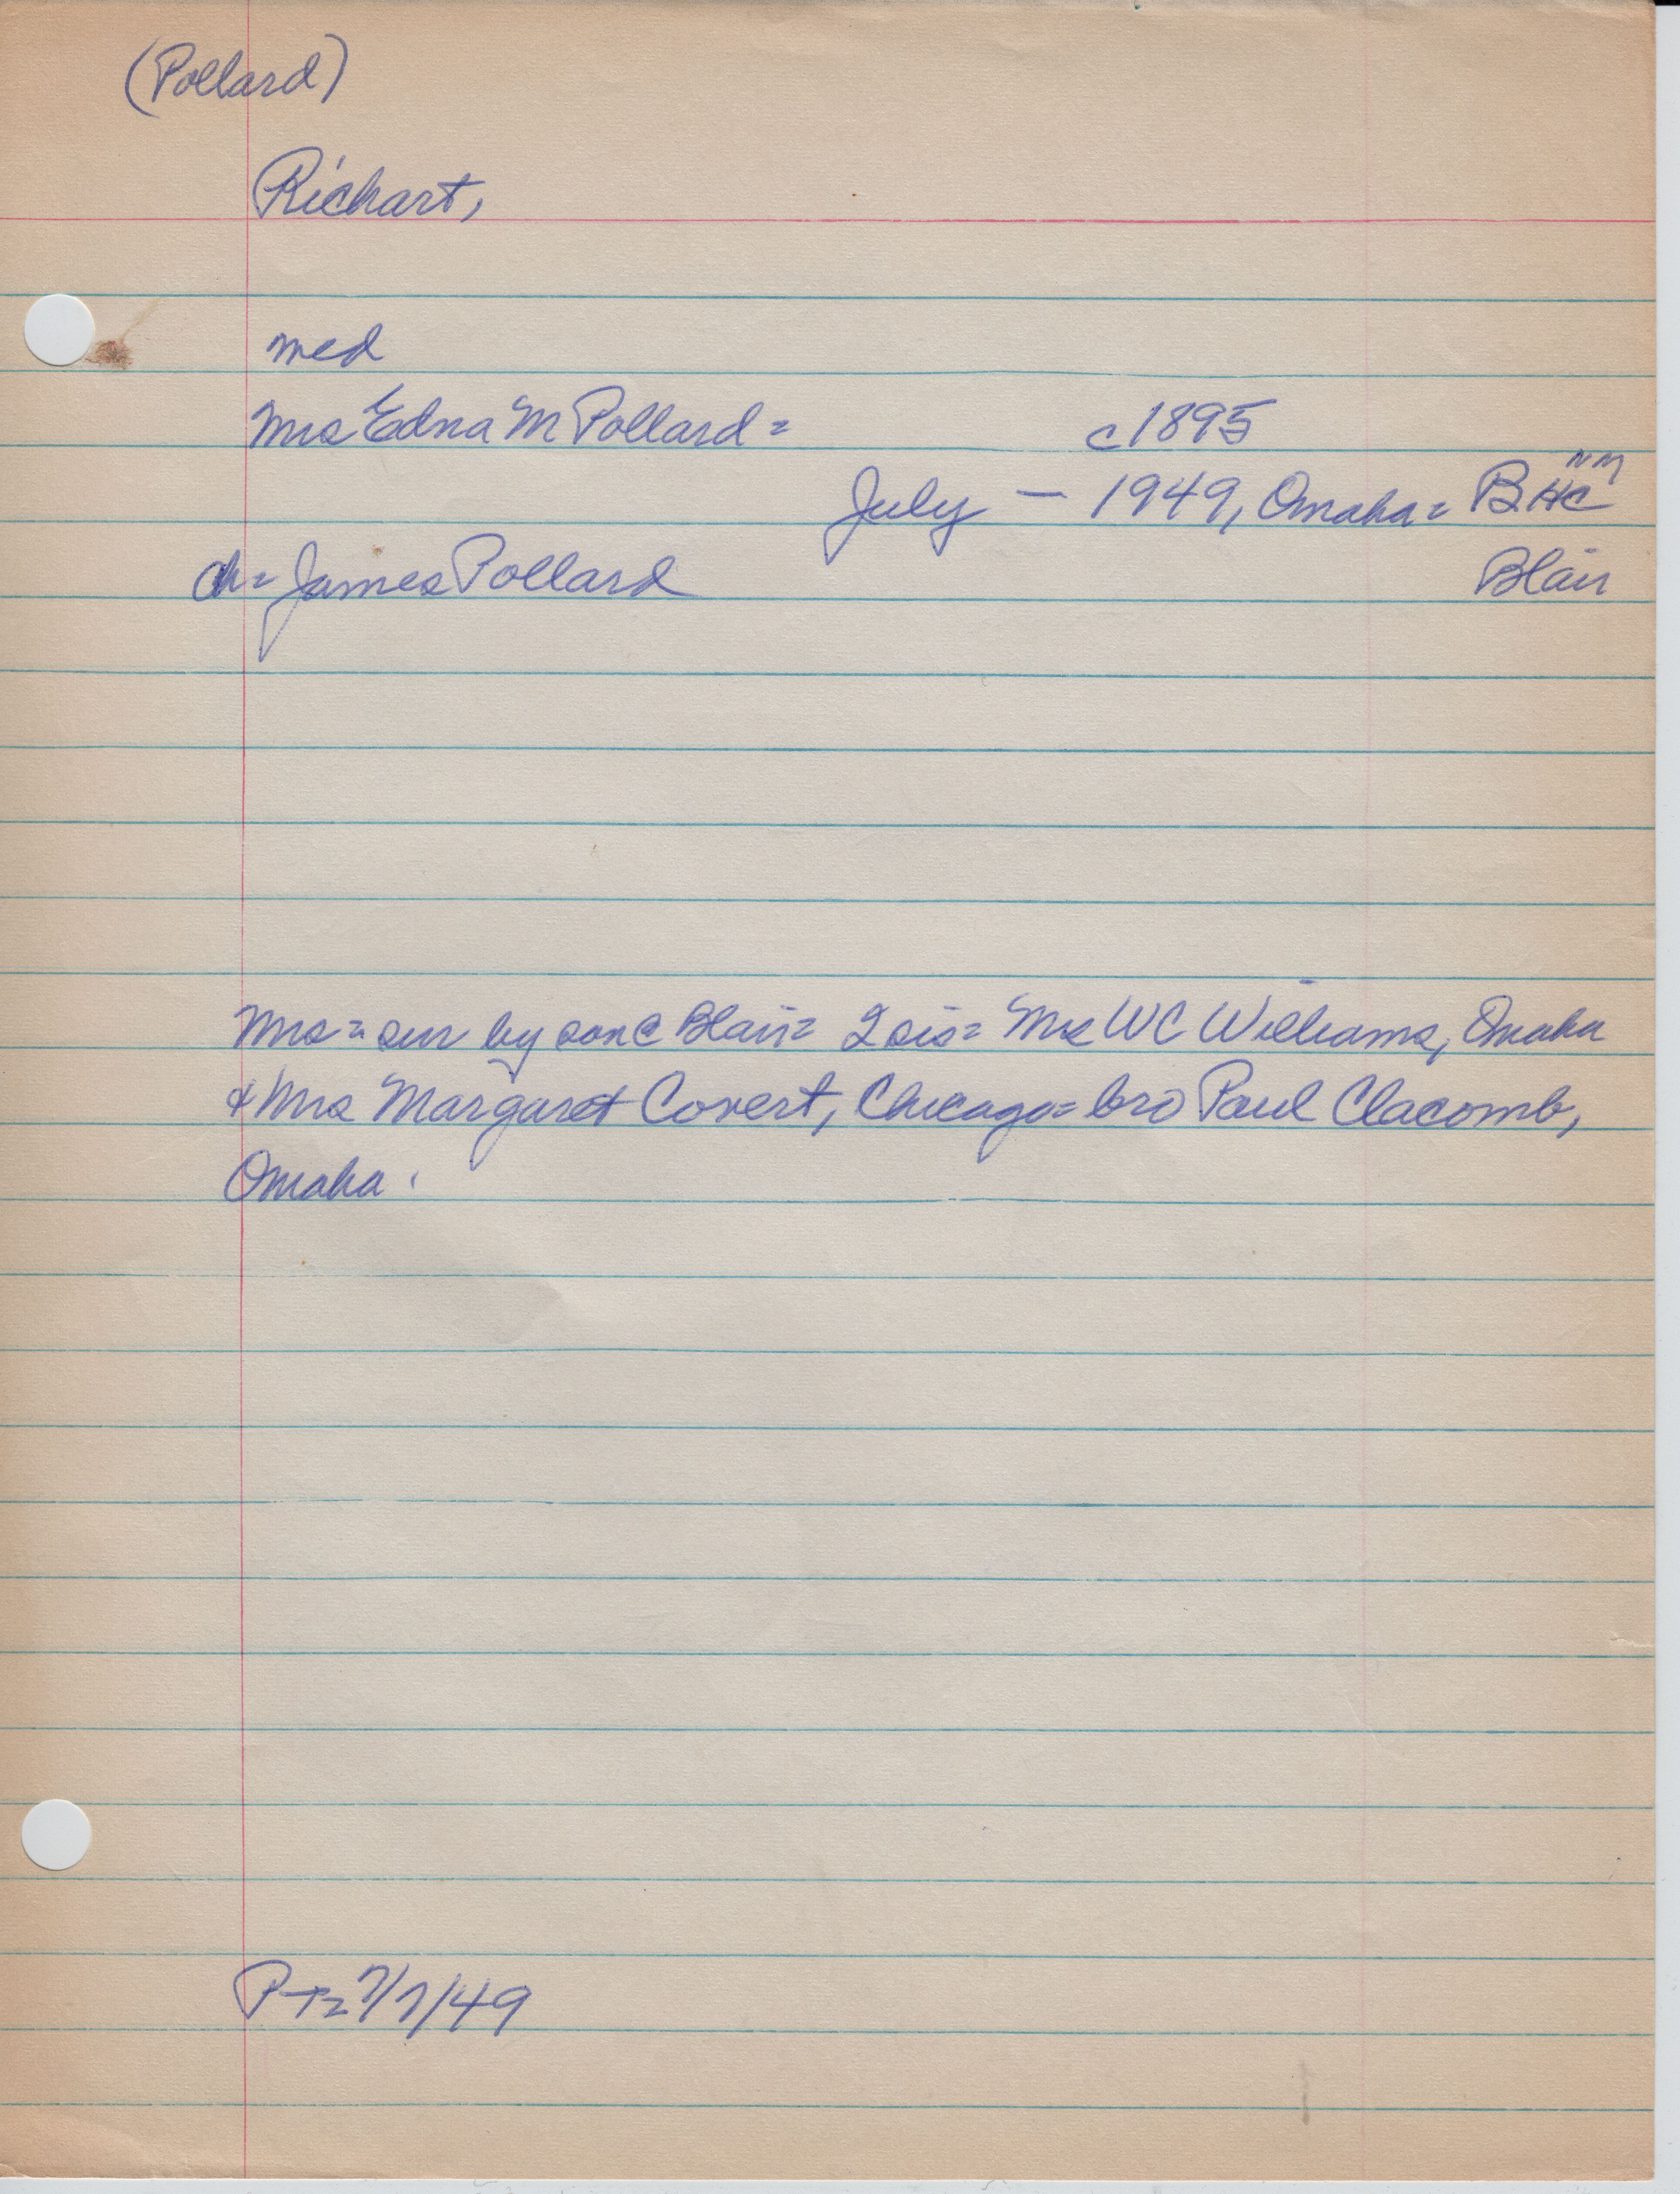 (Pollard)
Richart,
med
Mrs Edna M Pollard = c1895
July — 1949, Omaha = B HC NM
ch = James Pollard Blair
Mrs = sur by son @ Blair = 2 sis = Mrs WC Williams, Omaha
& Mrs Margaret Covert, Chicago = bro Paul Clacomb,
Omaha.
P-T = 7/7/49